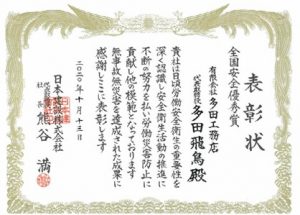 表彰状
全国安全優秀賞
有限会社 多田工務店
代表取締役 多田飛鳥殿
貴社は日頃労働安全衛生の重要性を
深く認識し安全衛生活動の推進に
不断の努力を払い労働災害防止に
貢献し他の模範となっております
無事故無災害を達成された成果に
感謝しここに表彰します
二〇二〇年十月十三日
日本建設株式会社
熊谷 満